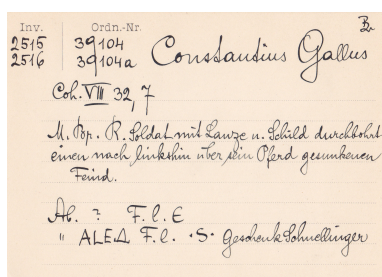 Inv. Ordn.-Nr. Br.
2515 39104 Constantius Gallus
2516 39104a
Coh. VIII 32, 7
M. Br. R. Soldat mit Lanze u. Schild durchbohrt
einen nach linkshin über sein Pferd gesunkenen
Feind.
Ab. ? F. l. E
" ALEΔ F. l. ·S· Geschenk Schnellinger